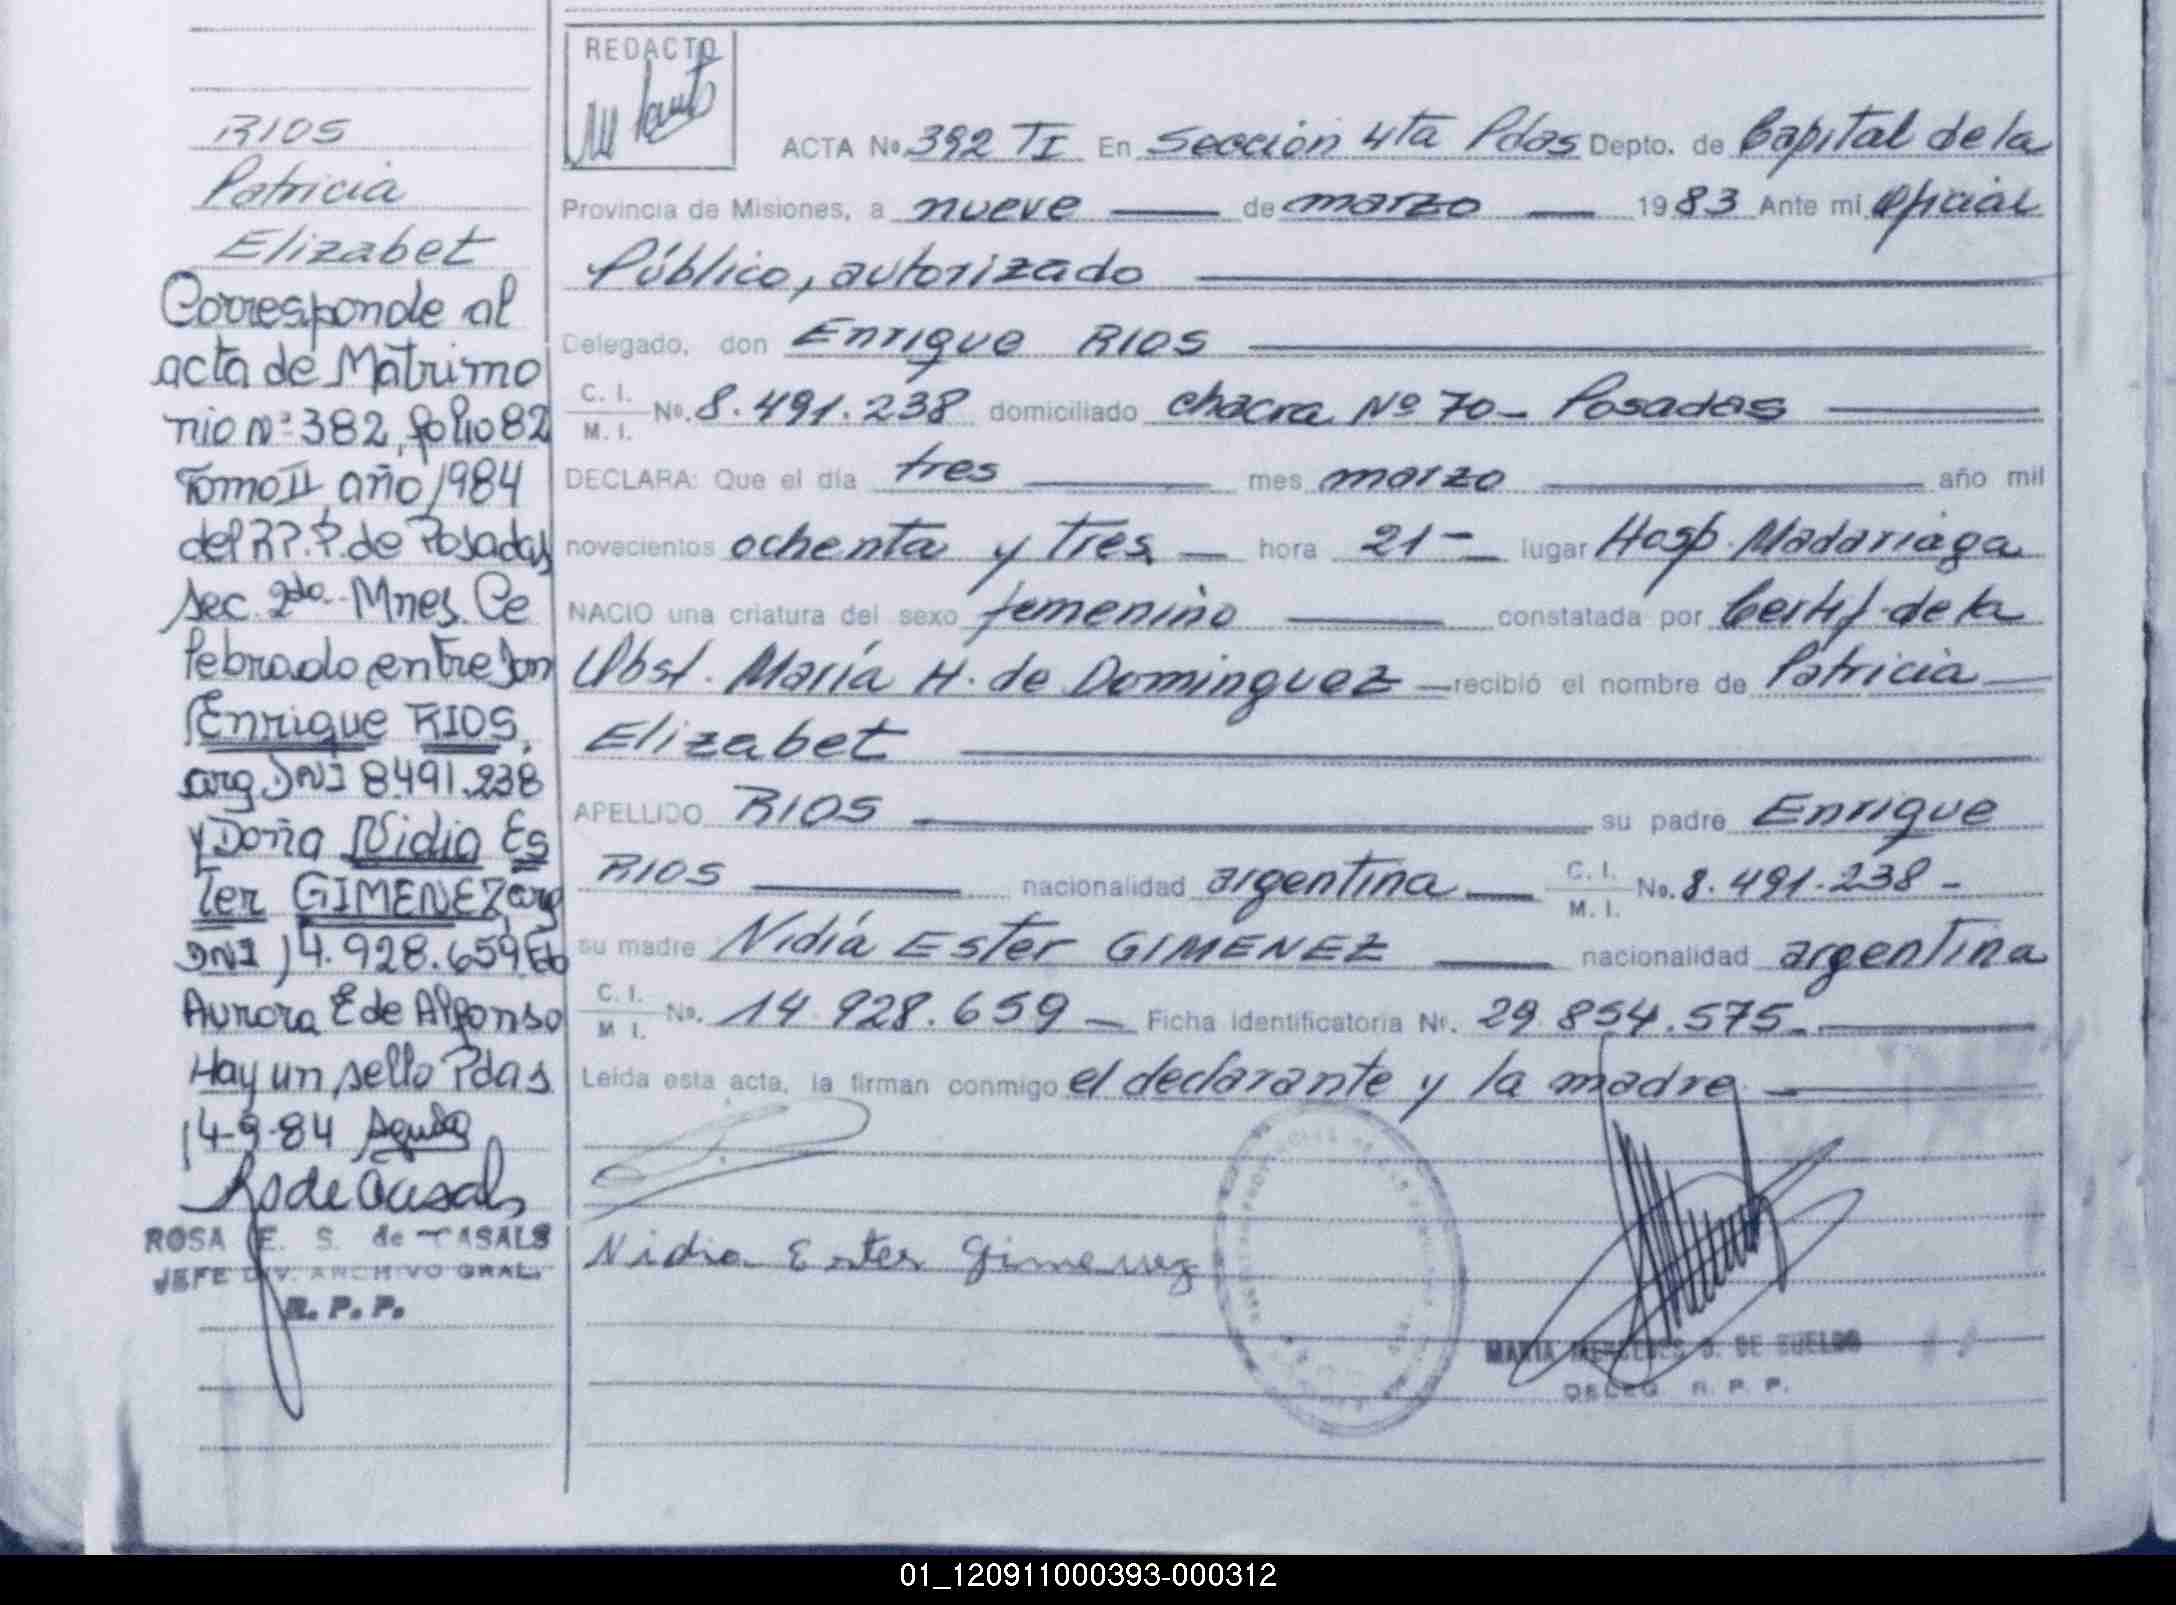 RIOS
Patricia
Elizabet
Corresponde al
acta de Matrimo
nio Nº 382, folio 82
Tomo II año 1984
del R.P.P. de Posadas
Sec. 2da Mnes. Ce
lebrado entre Don
Enrique RIOS,
arg DNI 8.491.238
y Doña Nidia Es
ter GIMENEZ, arg
DNI 14.928.659
Aurora E de Alfonso
Hay un sello Pdas
14-9-84
R S de Casals
ROSA E. S. de CASALS
JEFE DIV. ARCHIVO GRAL.
R. P. P.
REDACTO
ACTA Nº 392 TI En Sección 4ta Pdas Depto. de Capital de la
Provincia de Misiones, a nueve de marzo 1983 Ante mi Oficial
Público, autorizado
Delegado, don Enrique RIOS
C. I.
M. I. Nº. 8.491.238 domiciliado chacra Nº 70 - Posadas
DECLARA: Que el día tres mes marzo año mil
novecientos ochenta y tres hora 21 - lugar Hosp. Madariaga
NACIO una criatura del sexo femenino constatada por Certif. de la
Obst. María H. de Dominguez recibió el nombre de Patricia
Elizabet
APELLIDO RIOS su padre Enrique
RIOS nacionalidad argentina C. I.
M. I. No. 8.491.238 -
su madre Nidia Ester GIMENEZ nacionalidad argentina
C. I.
M I. No. 14.928.659 - Ficha Identificatoria Nº. 29.854.575 -
Leída esta acta, la firman conmigo el declarante y la madre
Nidia Ester Gimenez
MARIA MERCEDES D. DE SUELDO
DELEG. R. P. P.
01_120911000393-000312